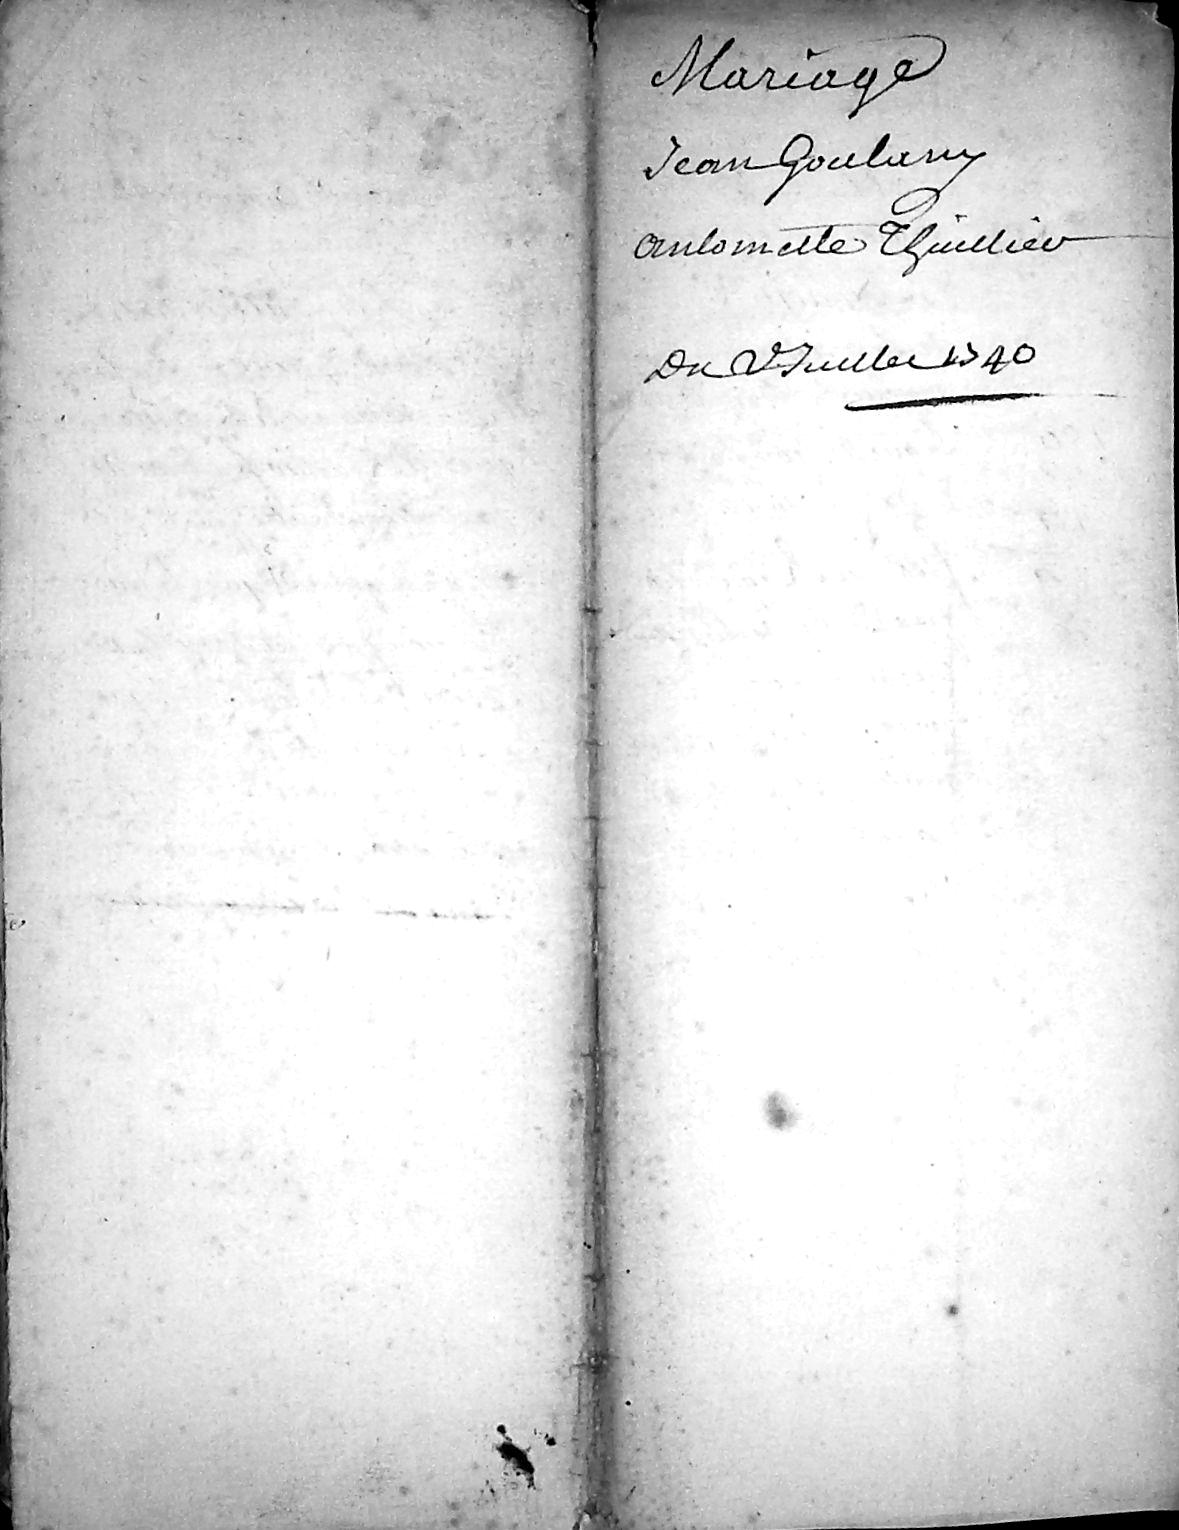 Mariage
Jean Goulany
antoinette Thuillier
Du 2 Juillet 1740